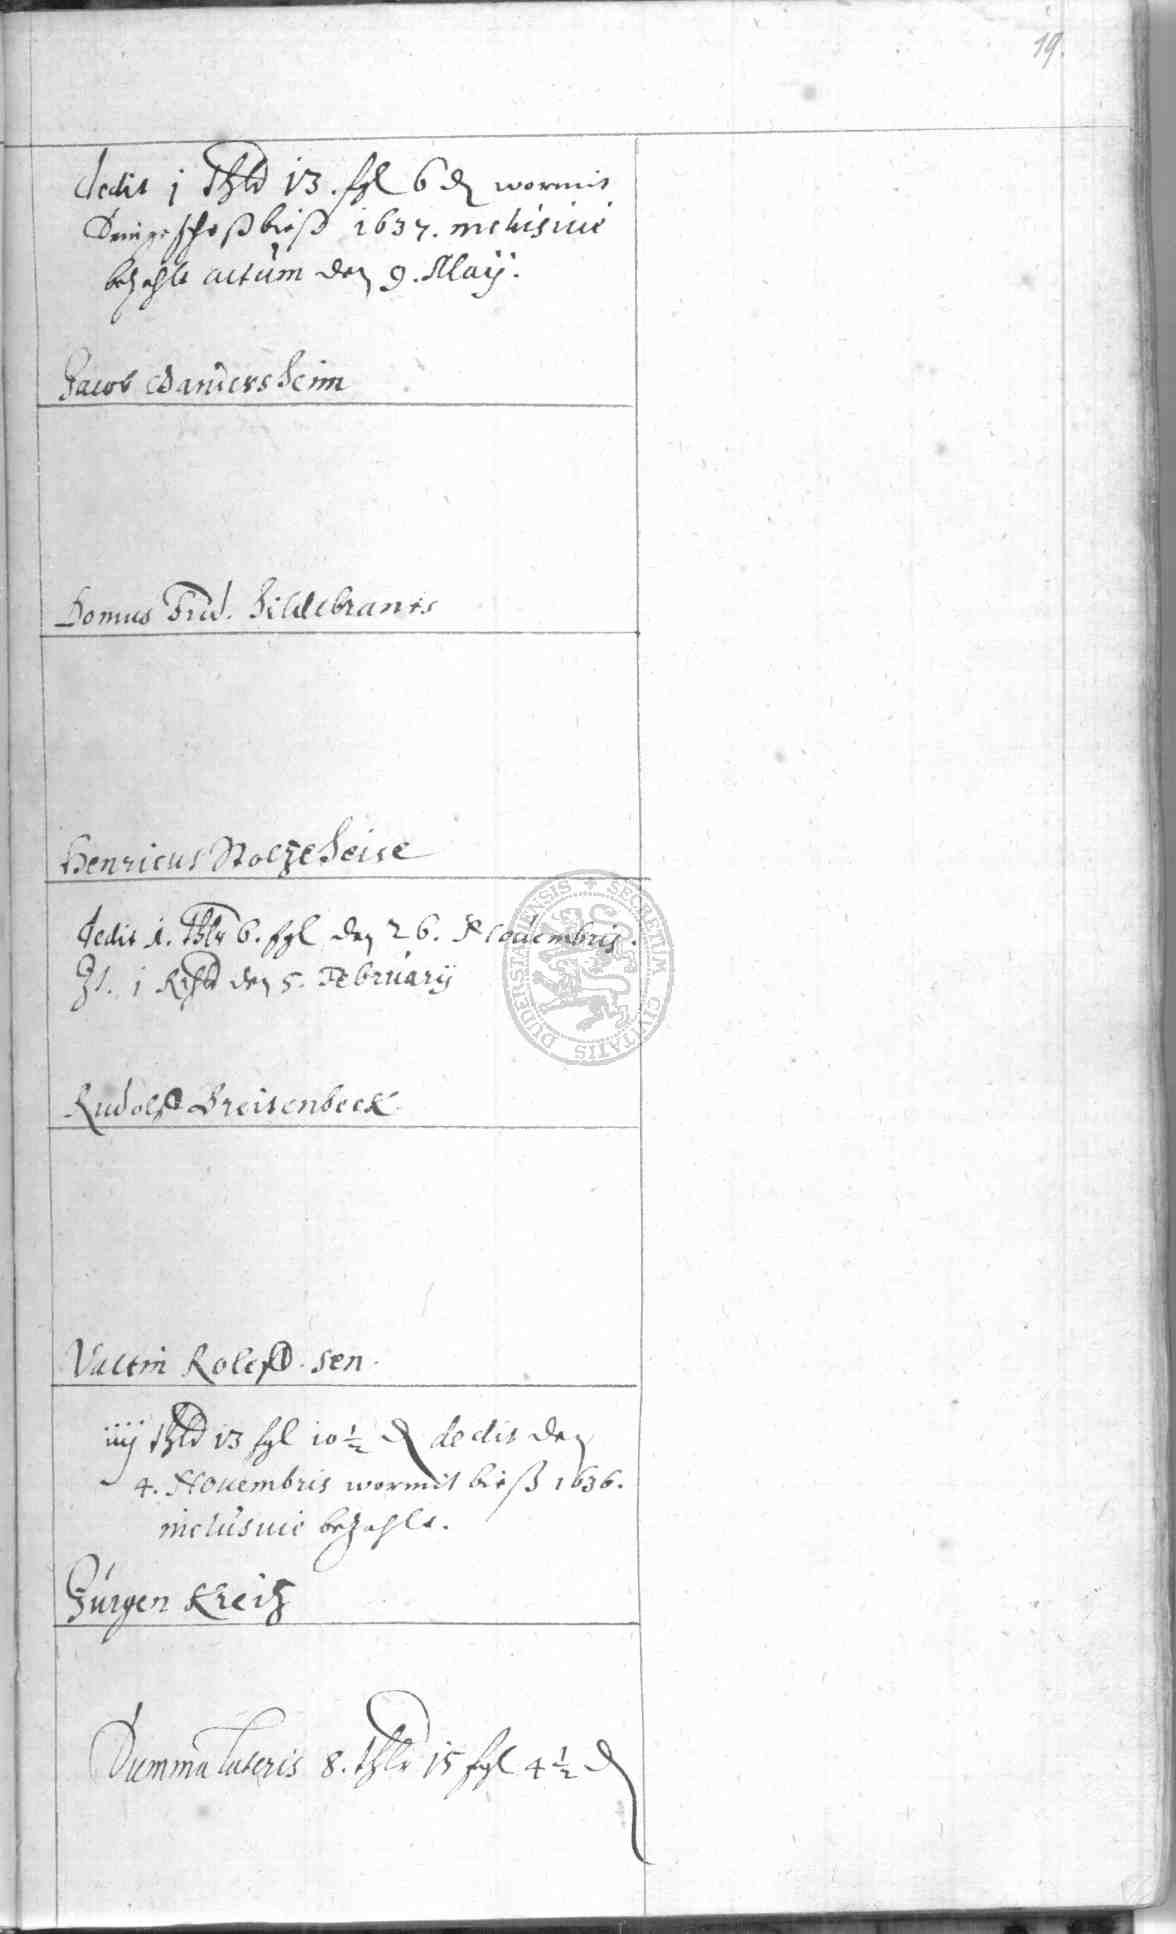 19.
dedit j Thlr 13. sgl 6 ₰ wormit
sein geschoß bieß 1637. inclusiue
bezahlt actum den 9. Maÿ.
Jacob Gandersheim
Domus Frid. Hildebrants
Henricus Stolzeheise
dedit 1. thlr 6. sgl den 26. Nouembris.
It. j Rthlr den 5. Februarÿ
Rudolff Breitenbeck
Valtin Roleff. sen.
iiij thlr 13 sgl 10 ½ ₰ dedit den
4. Nouembris wormit bieß 1636.
inclusiue bezahlt.
Jürgen Kreitz
Summa lateris 8. thlr 15 sgl 4 ½ ₰
SECRETUM CIVITATIS DUDERSTADIENSIS